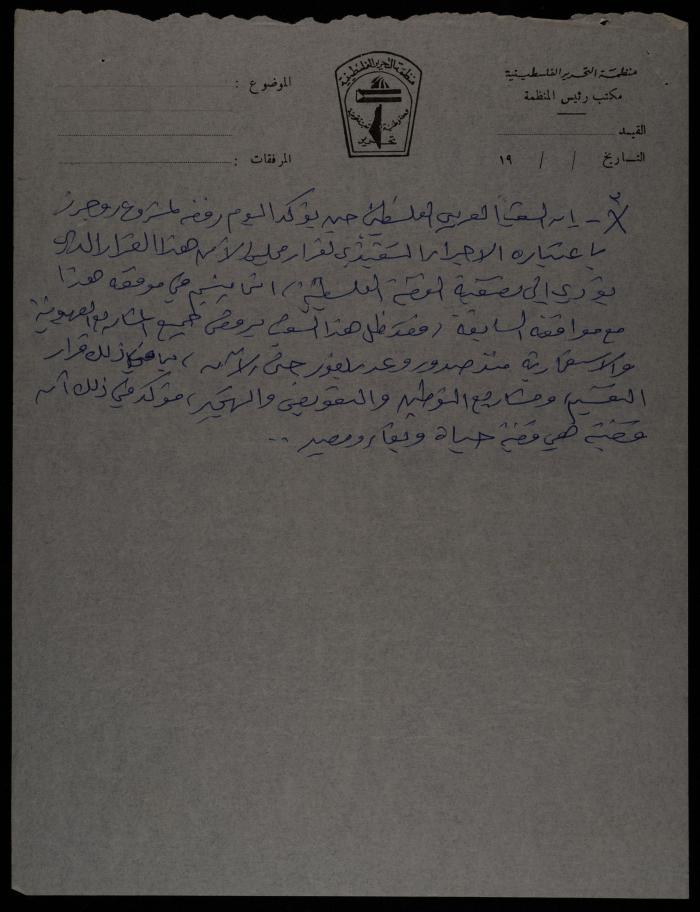 منظمة التحرير الفلسطينية
مكتب رئيس المنظمة
القيد
التاريخ / / ١٩
الموضوع :
المرفقات :
منظمة التحرير الفلسطينية
وحدة وطنية
تحرير
٣ - إن الشعب العربي الفلسطيني حين يؤكد اليوم رفضه لمشروع روجرز
باعتباره الاجراء التنفيذي لقرار مجلس الأمن هذا القرار الذي
يؤدي إلى تصفية القضية الفلسطينية، انما ينسجم في موقفه هذا
مع مواقفه السابقة، فقد ظل هذا الشعب يرفض جميع المشاريع الصهيونية
والاستعمارية منذ صدور وعد بلفور حتى الآن، بما في ذلك قرار
التقسيم ومشاريع التوطين والتعويض والتهجير، مؤكدا في ذلك أن
قضيته هي قضية حياة وبقاء ومصير ..